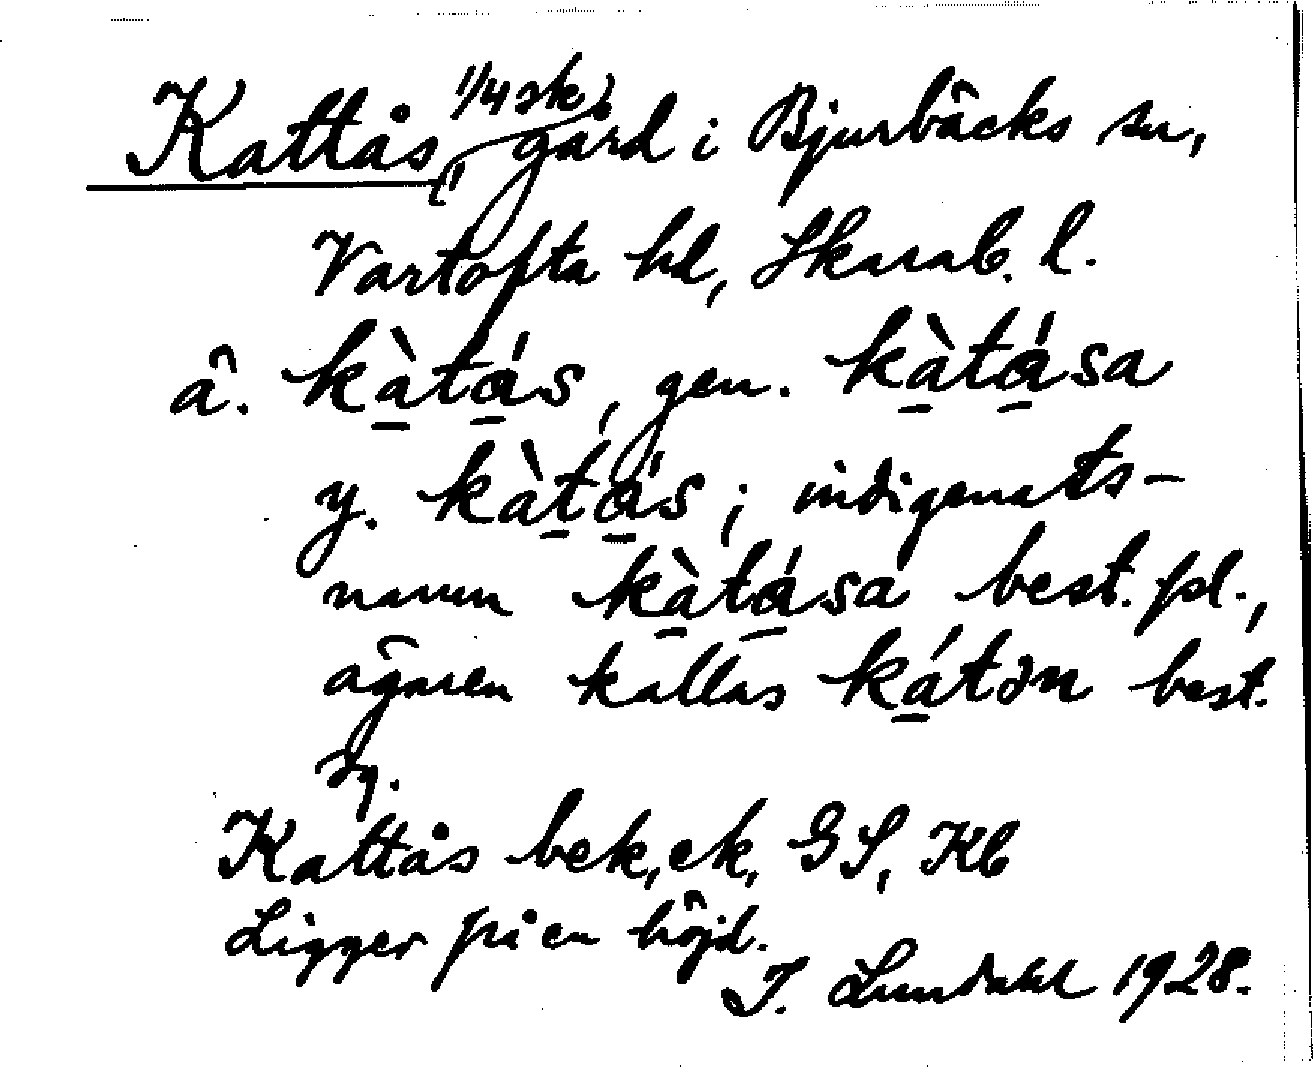 Kattås, 1/4 sk, gård i Bjurbäcks sn,
Vartofta hd, Skarab. l.
ä. kàtás, gen. kàtása
y. kàtás; indigenats-
namn kàtása best. pl.,
ägaren kallas kátən best.
sg.
Kattås bek, ek, GS, Kb
Ligger på en höjd.
I. Lundahl 1928.